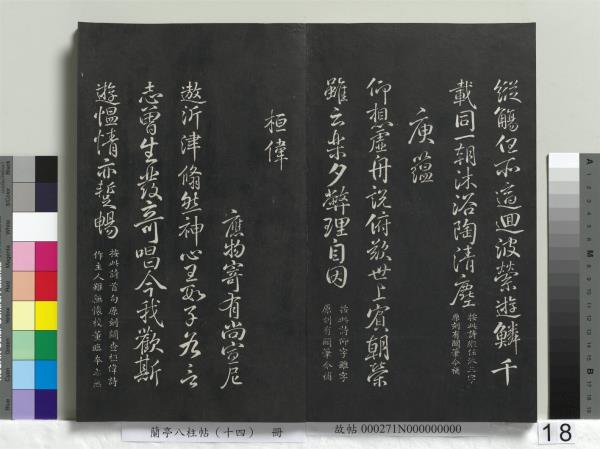 縱觴任所適迴波縈遊鱗千
載同一朝沐浴陶清塵
原刻有闕筆今補
庾蘊
仰想虛舟說俯歎世上賓朝榮
雖云樂夕斃理自因
按此詩仰字雖字
原刻有闕筆今補
桓偉
應物寄有尚宣尼
遨沂津翛然神心王數子各言
志曾生發奇唱今我歡斯
遊慍情亦蹔暢
按此詩首句原刻闕查桓偉詩
蘭亭八柱帖（十四） 冊
故帖 000271N000000000
18